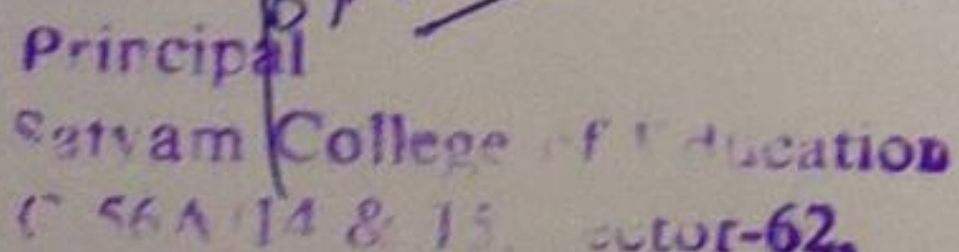 Principal
Satyam College of Education
C 56A/14 & 15, Sector-62,